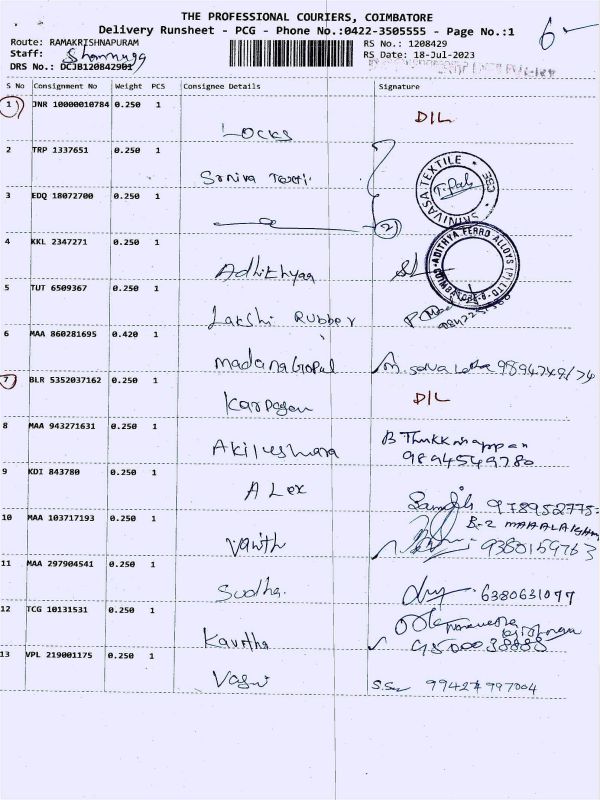 THE PROFESSIONAL COURIERS, COIMBATORE
Delivery Runsheet - PCG - Phone No.:0422-3505555 - Page No.:1
6-
Route: RAMAKRISHNAPURAM
RS No.: 1208429
Staff:
RS Date: 18-Jul-2023
DRS No.: DCJB120842901
S No Consignment No Weight PCS Consignee Details Signature
1 JNR 10000010784 0.250 1 Locks D/L
2 TRP 1337651 0.250 1 Sriniva
SRINIVASA TEXTILE * CBE *
3 EDQ 18072700 0.250 1
2
4 KKL 2347271 0.250 1 Adhithyaa
ADITHYA FERRO ALLOYS (P) LTD
5 TUT 6509367 0.250 1 Lakshi Rubber
6 MAA 860281695 0.420 1 madanaGopal
7 BLR 5352037162 0.250 1 Karpagam D/L
8 MAA 943271631 0.250 1 Akileshwara
9894549780
9 KDI 843780 0.250 1 ALex
978952775
10 MAA 103717193 0.250 1
9380159763
11 MAA 297904541 0.250 1 Sudha.
6380631077
12 TCG 10131531 0.250 1 Kavitha
9500038888
13 VPL 219001175 0.250 1 Vasvi
99427 997004